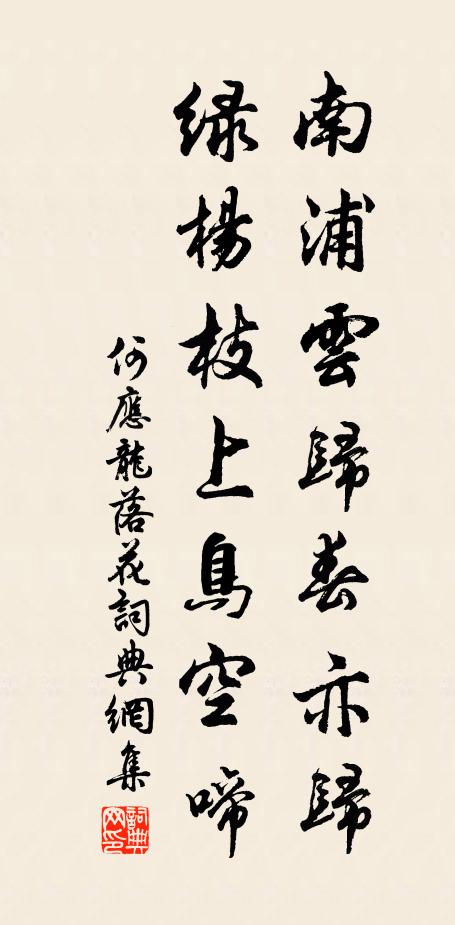 南浦雲歸春亦歸
綠楊枝上鳥空啼
何應龍落花詞典網集
詞典網印